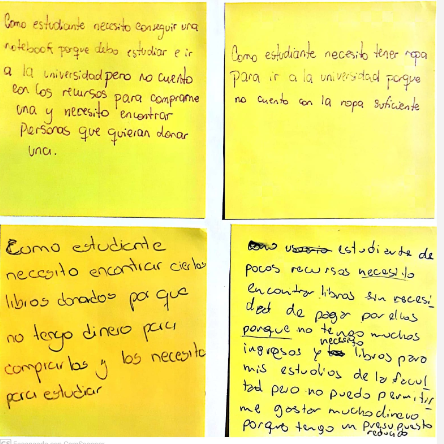 Como estudiante necesito conseguir una
notebook porque debo estudiar e ir
a la universidad pero no cuento
con los recursos para comprarme
una y necesito encontrar
personas que quieran donar
una.
Como estudiante necesito tener ropa
para ir a la universidad porque
no cuento con la ropa suficiente
Como estudiante
necesito encontrar ciertos
libros donados porque
no tengo dinero para
comprarlos y los necesito
para estudiar
estudiante de
pocos recursos necesito
encontrar libros sin necesi
dad de pagar por ellos
porque no tengo muchos
ingresos y necesito libros para
mis estudios de la facul
tad pero no puedo permitir
me gastar mucho dinero
porque tengo un presupuesto
reducido